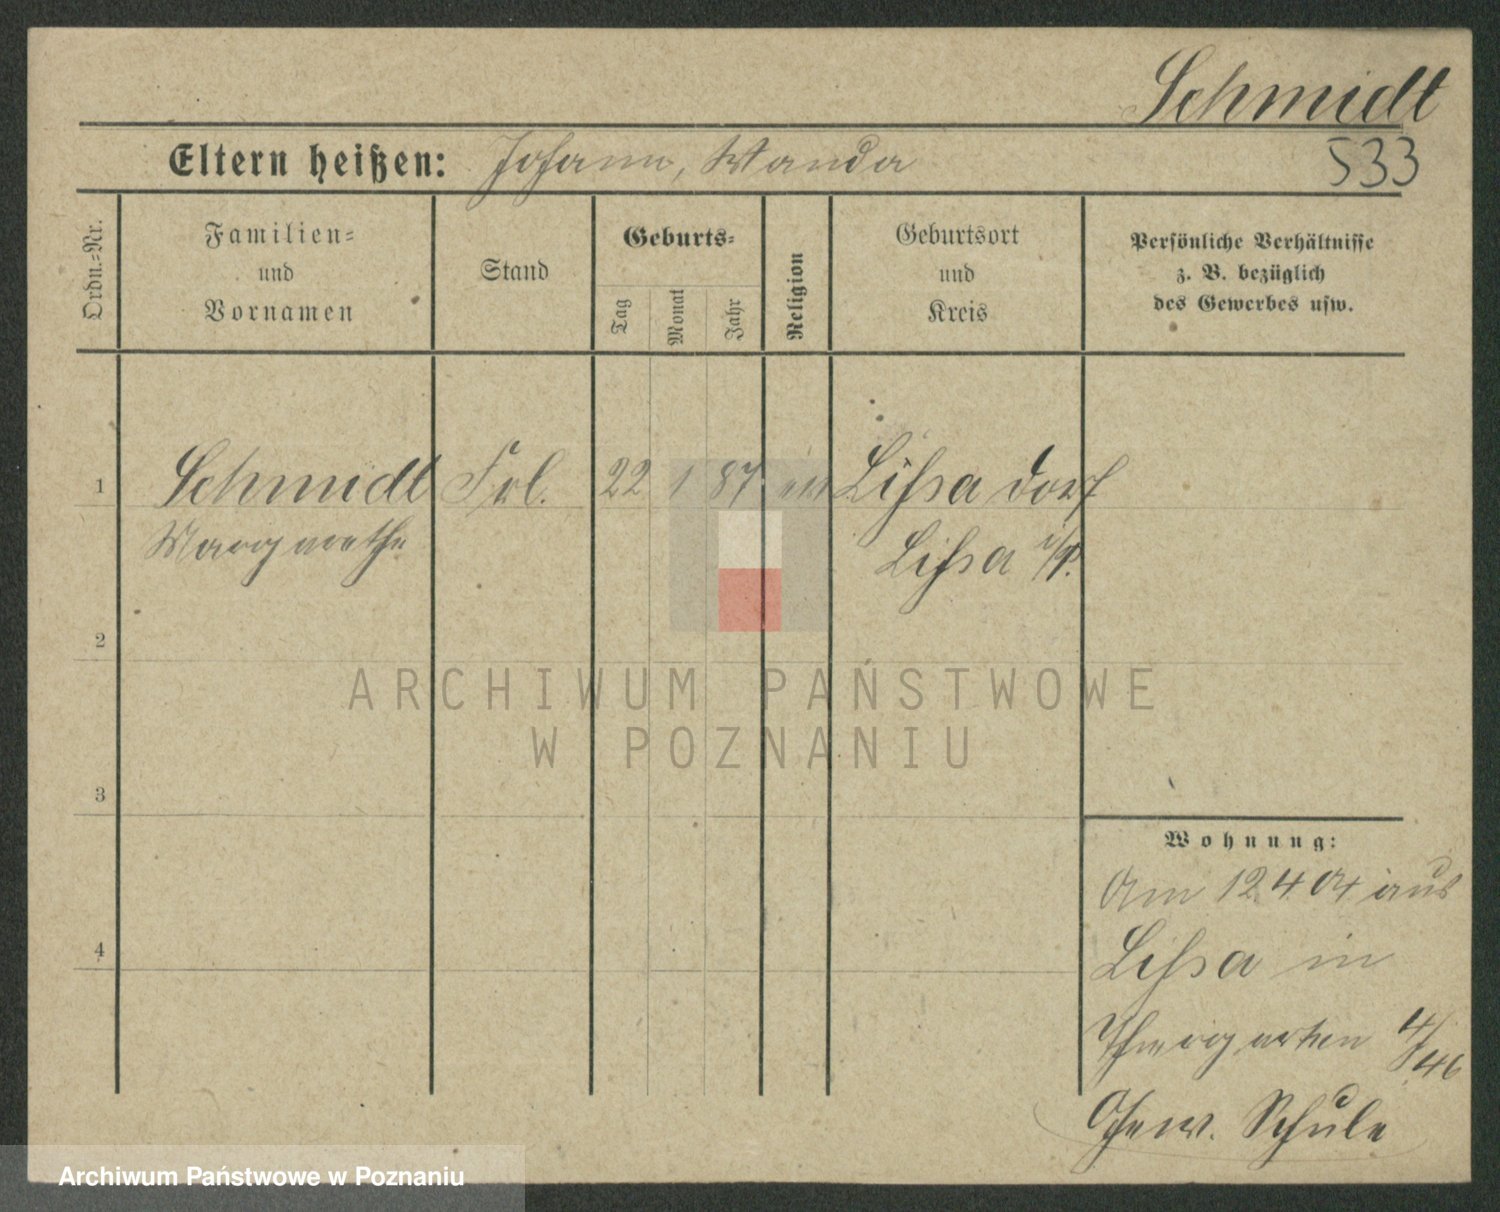 Schmidt
533
Eltern heißen: Johann, Wanda
Ordn.-Nr.
Familien-
und
Vornamen
Stand
Geburts-
Tag
Monat
Jahr
Religion
Geburtsort
und
Kreis
Persönliche Verhältnisse
z. B. bezüglich
des Gewerbes usw.
1 Schmidt Frl. 22 1 87 ev Lissa Dorf
Margarethe Lissa i/P.
2
ARCHIWUM PAŃSTWOWE
W POZNANIU
3
Wohnung:
Am 12 4 04 aus
4
Lissa in
46
Gew. Schule
Archiwum Państwowe w Poznaniu